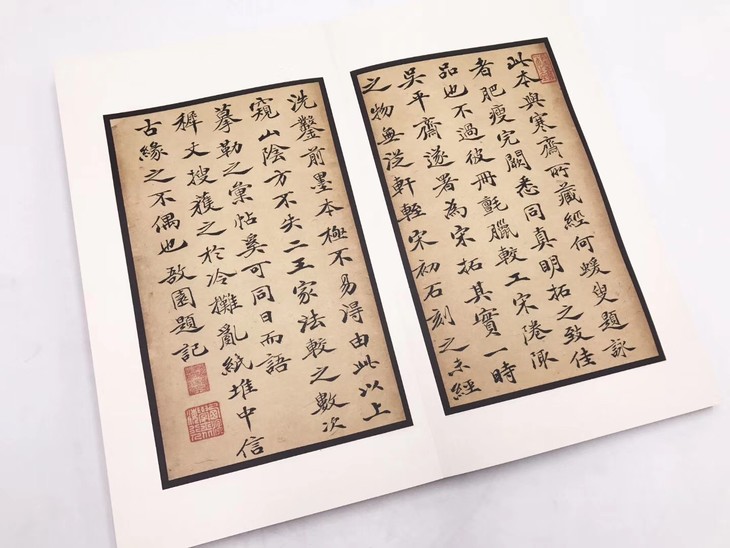 此本與寒齋所藏經何蝯叟題詠
者肥瘦完闕悉同真明拓之致佳
品也不過彼冊氈臘較工宋
吳平齋遂署為宋拓其實一時
之物無從軒輊宋初石刻之未經
洗鑿前墨本極不易得由此以上
窺山陰方不失二王家法較之數次
摹勒之彙帖奚可同日而語
穉文搜獲之於冷攤亂紙堆中信
古緣之不偶也敔園題記